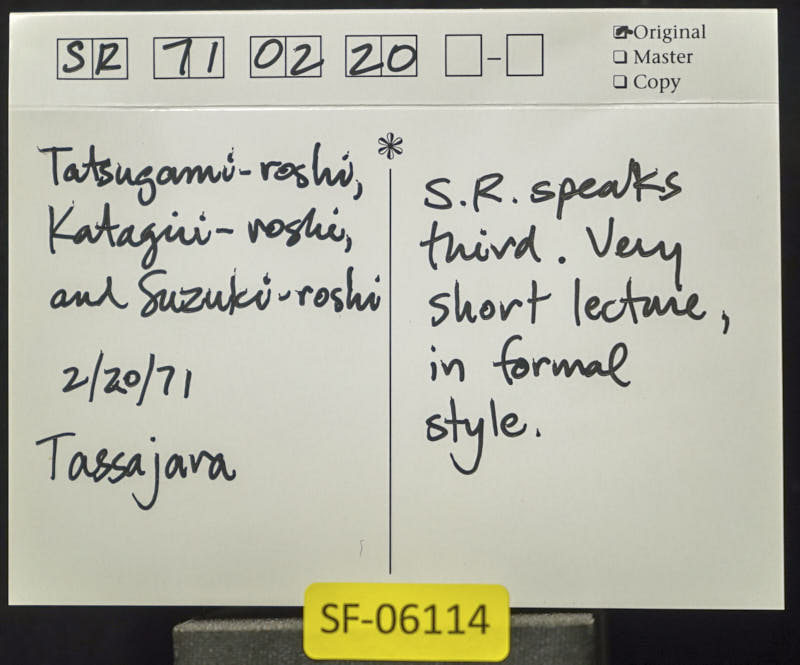 SR 71 02 20 -
Original
Master
Copy
Tatsugami-roshi,
Katagiri-roshi,
and Suzuki-roshi
2/20/71
Tassajara
*
S.R. speaks
third. Very
short lecture,
in formal
style.
SF-06114